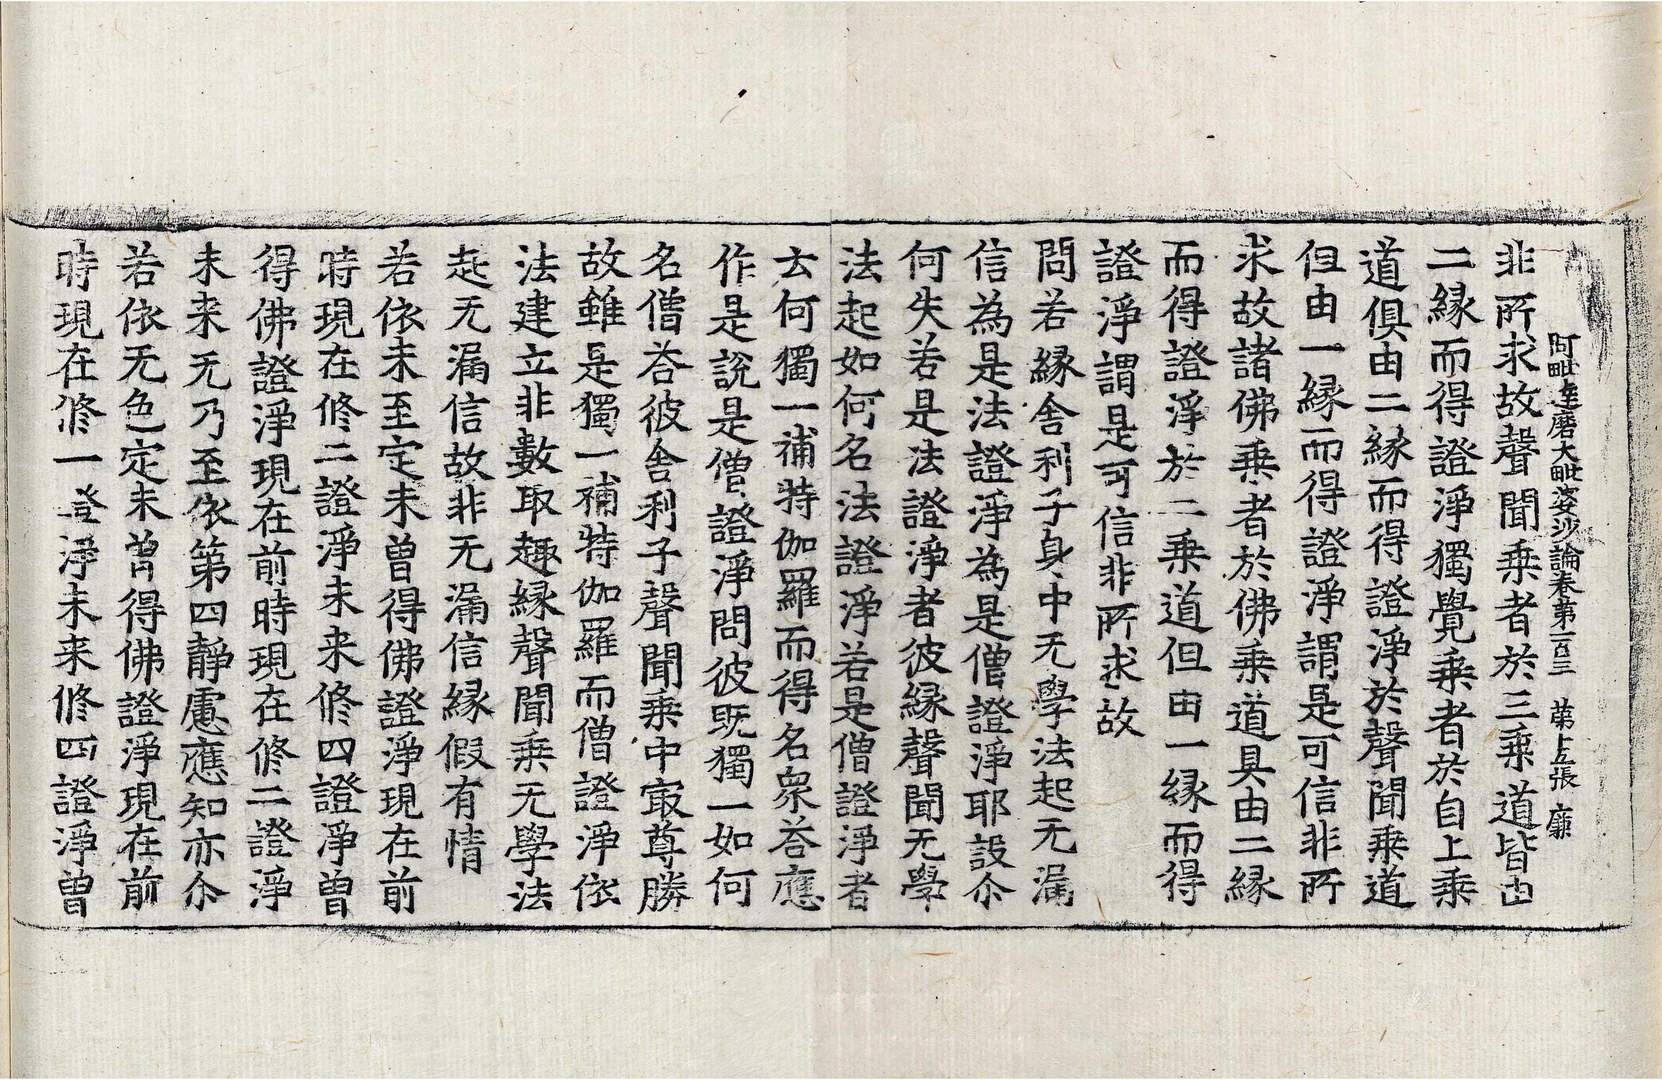 阿毗達磨大毗婆沙論卷第一百三　第十五張　廉
非所求故聲聞乘者於三乘道皆由
二緣而得證淨獨覺乘者於自上乘
道俱由二緣而得證淨於聲聞乘道
但由一緣而得證淨謂是可信非所
求故諸佛乘者於佛乘道具由二緣
而得證淨於二乘道但由一緣而得
證淨謂是可信非所求故
問若緣舍利子身中无學法起无漏
信為是法證淨為是僧證淨耶設尒
何失若是法證淨者彼緣聲聞无學
法起如何名法證淨若是僧證淨者
云何獨一補特伽羅而得名衆荅應
作是說是僧證淨問彼既獨一如何
名僧荅彼舍利子聲聞乘中㝡尊勝
故雖是獨一補特伽羅而僧證淨依
法建立非數取趣緣聲聞乘无學法
起无漏信故非无漏信緣假有情
若依未至定未曾得佛證淨現在前
時現在修二證淨未来修四證淨曾
得佛證淨現在前時現在修二證淨
未来无乃至依第四靜慮應知亦尒
若依无色定未曾得佛證淨現在前
時現在修一證淨未来修四證淨曾